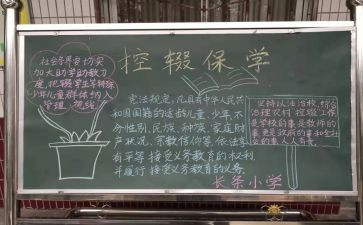 控辍保学
社会各界要切实
加大助学助教力
度,把辍学学生等特殊
少年儿童群体纳入
管理视线。
宪法规定,凡具有中华人民共
和国国籍的适龄儿童、少年,不
分性别、民族、种族、家庭财
产状况、宗教信仰等,依法享
有平等接受义务教育的权利,
并履行接受义务教育的义务。
坚持以法治校,综合
治理农村控辍工作
是学校的事是教师的
事更是政府的事和全社
会的事人人有责。
长条小学